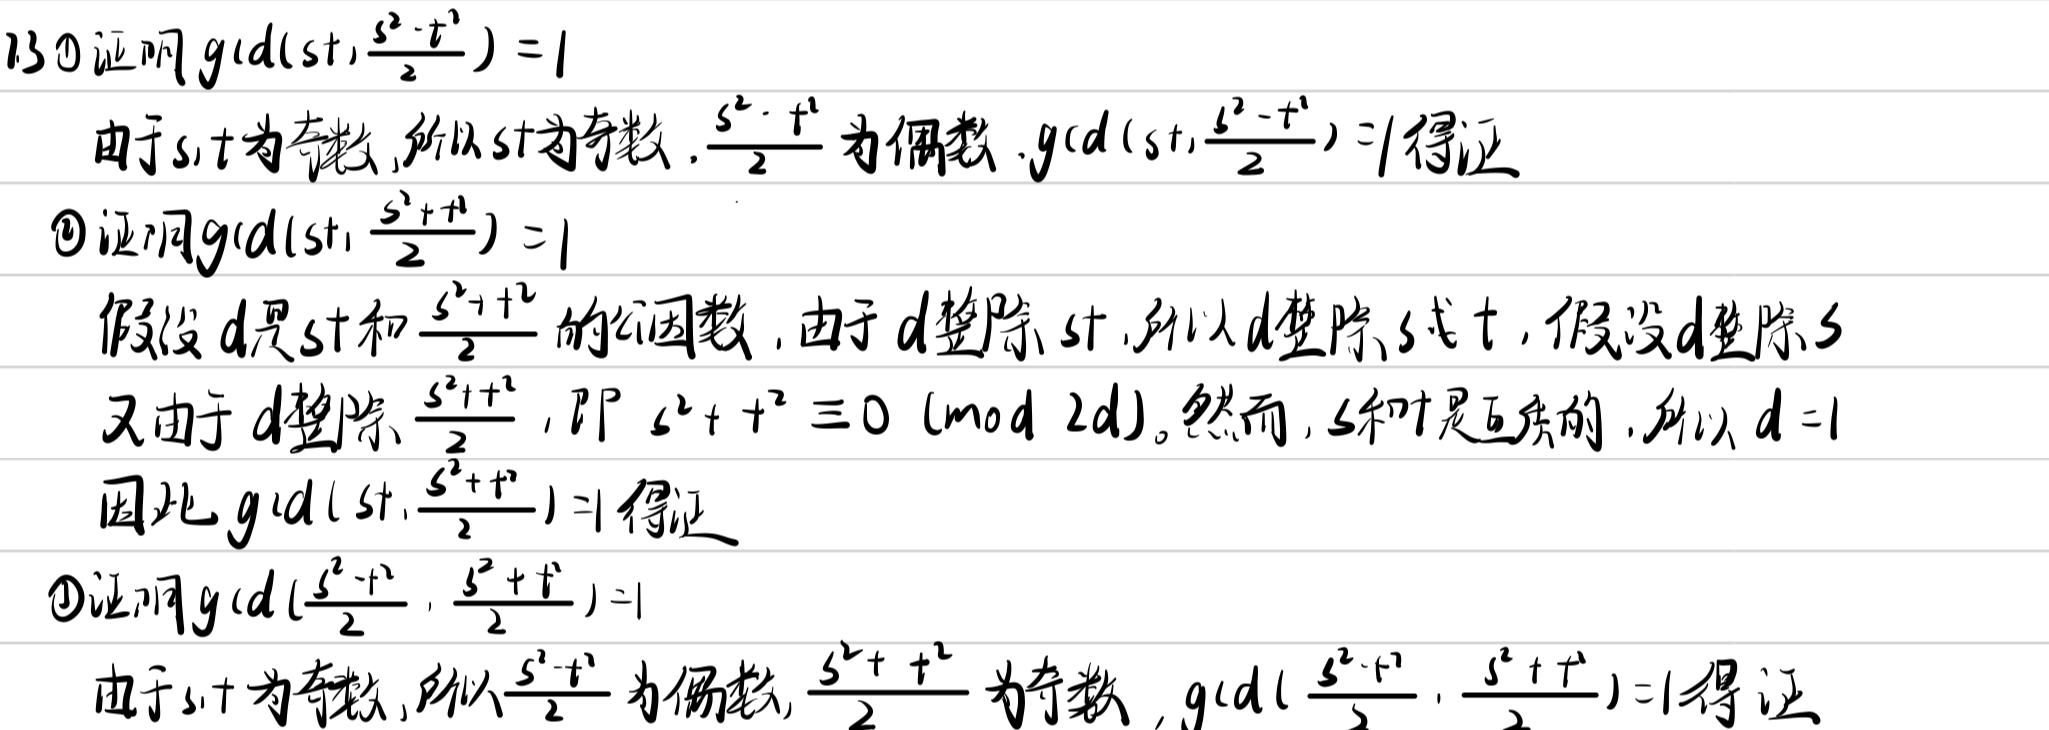 13①证明gcd(st,(s²-t²)/2)=1
由于s,t为奇数,所以st为奇数,(s²-t²)/2为偶数.gcd(st,(s²-t²)/2)=1得证
②证明gcd(st,(s²+t²)/2)=1
假设d是st和(s²+t²)/2的公因数,由于d整除st,所以d整除s或t,假设d整除s
又由于d整除(s²+t²)/2,即s²+t²≡0 (mod 2d)。然而,s和t是互质的,所以d=1
因此gcd(st,(s²+t²)/2)=1得证
①证明gcd((s²-t²)/2,(s²+t²)/2)=1
由于s,t为奇数,所以(s²-t²)/2为偶数,(s²+t²)/2为奇数,gcd((s²-t²)/2,(s²+t²)/2)=1得证